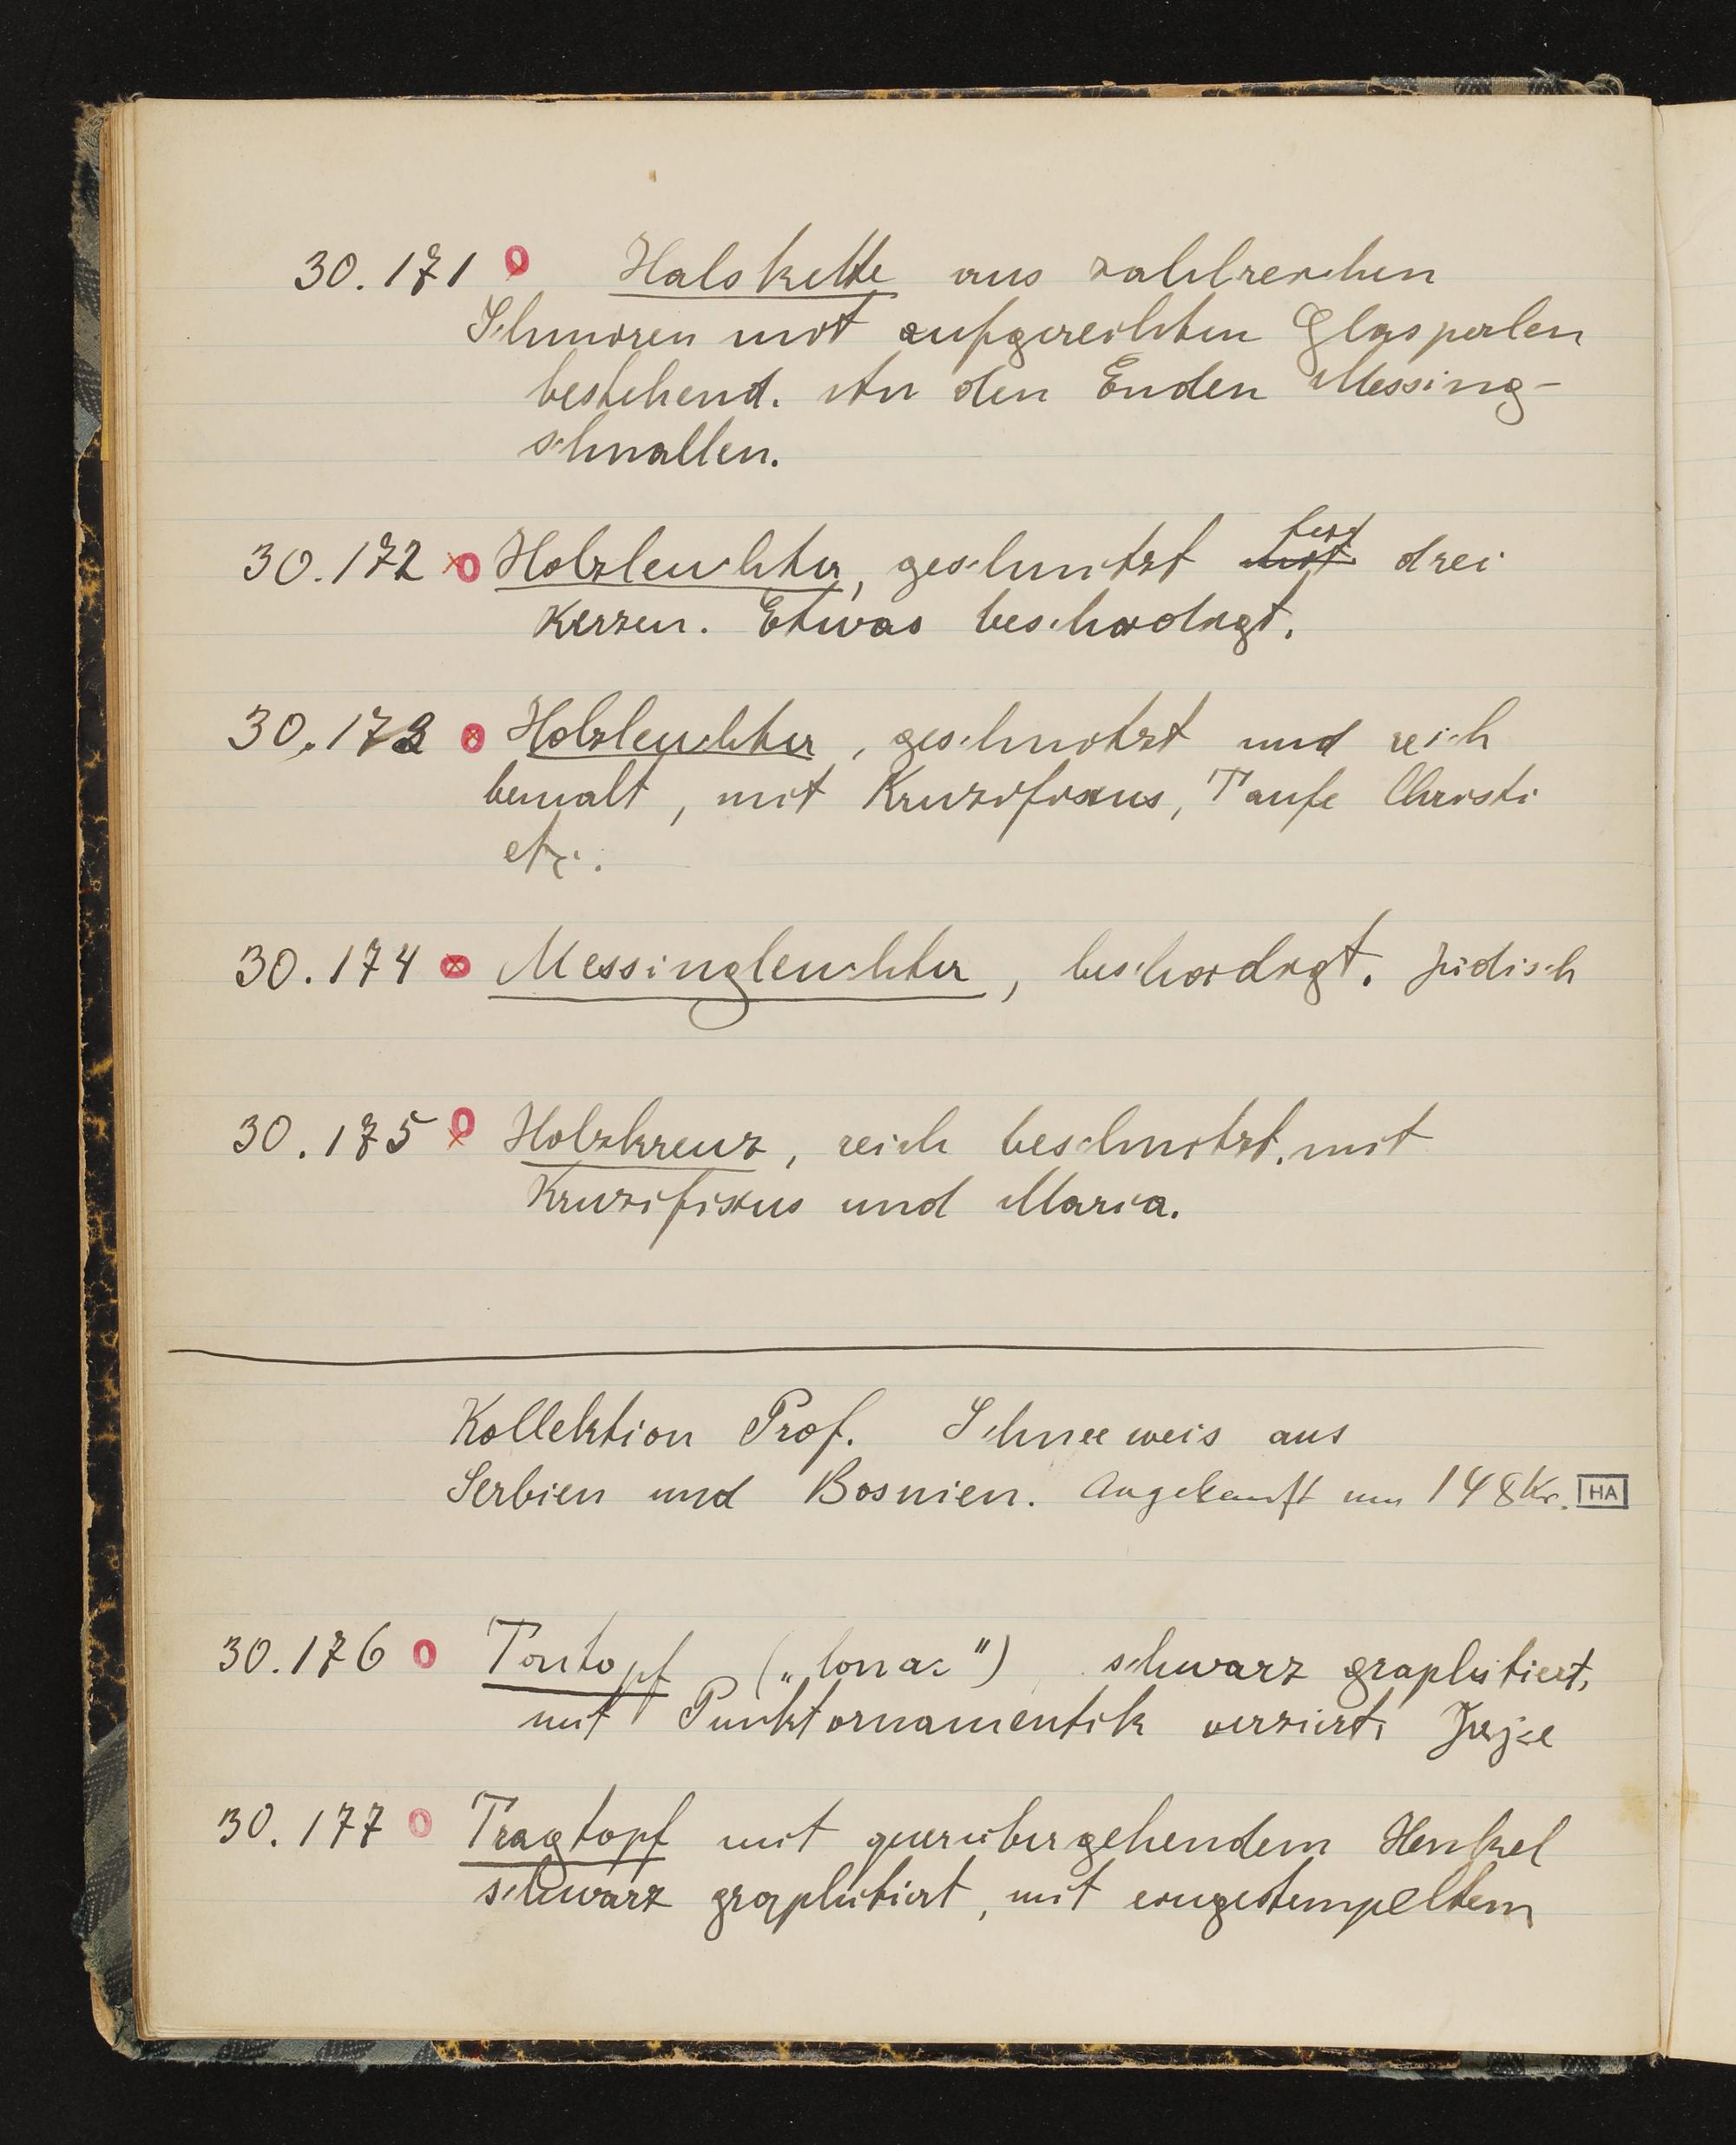 30.171 Halskette aus zahlreichen
Schnüren mit aufgereihten Glasperlen
bestehend. An den Enden Messing-
schnallen.
30.172 Holzleuchter, geschnitzt für
mit drei
Kerzen. Etwas beschädigt.
30.173 Holzleuchter, geschnitzt und reich
bemalt, mit Kruzifixus, Taufe Christi
etc.
30.174 Messingleuchter, beschädigt. Jüdisch
30.175 Holzkreuz, reich beschnitzt, mit
Kruzifixus und Maria.
Kollektion Prof. Schneeweis aus
Serbien und Bosnien. Angekauft um 148 Kr. HA
30.176 Tontopf („lonac") schwarz graphitiert,
mit Punktornamentik verziert. Jajce
30.177 Tragtopf mit querübergehendem Henkel
schwarz graphitiert, mit eingestempeltem